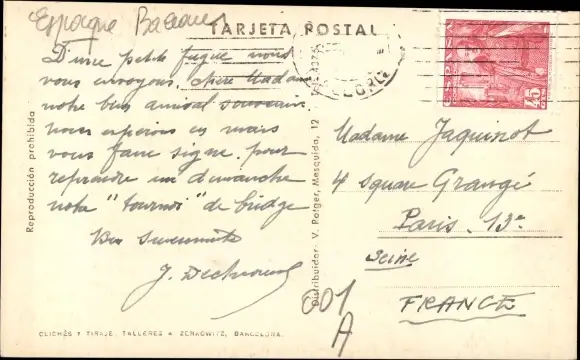 Espagne Baléares
TARJETA POSTAL
D'une petite fugue nous
vous envoyons, chère Madame
notre bien amical souvenir.
nous espérons en mars
vous faire signe pour
reprendre un dimanche
notre "tournoi" de bridge
Bien
J.
Madame Jaquinot
4 Square Grangé
Paris. 13e
Seine
FRANCE
001
A
45
Reproducción prohibida
Distribuidor: V. Rotger, Mesquida, 12
CLICHÉS Y TIRAJE: TALLERES A. ZERKOWITZ, BARCELONA.